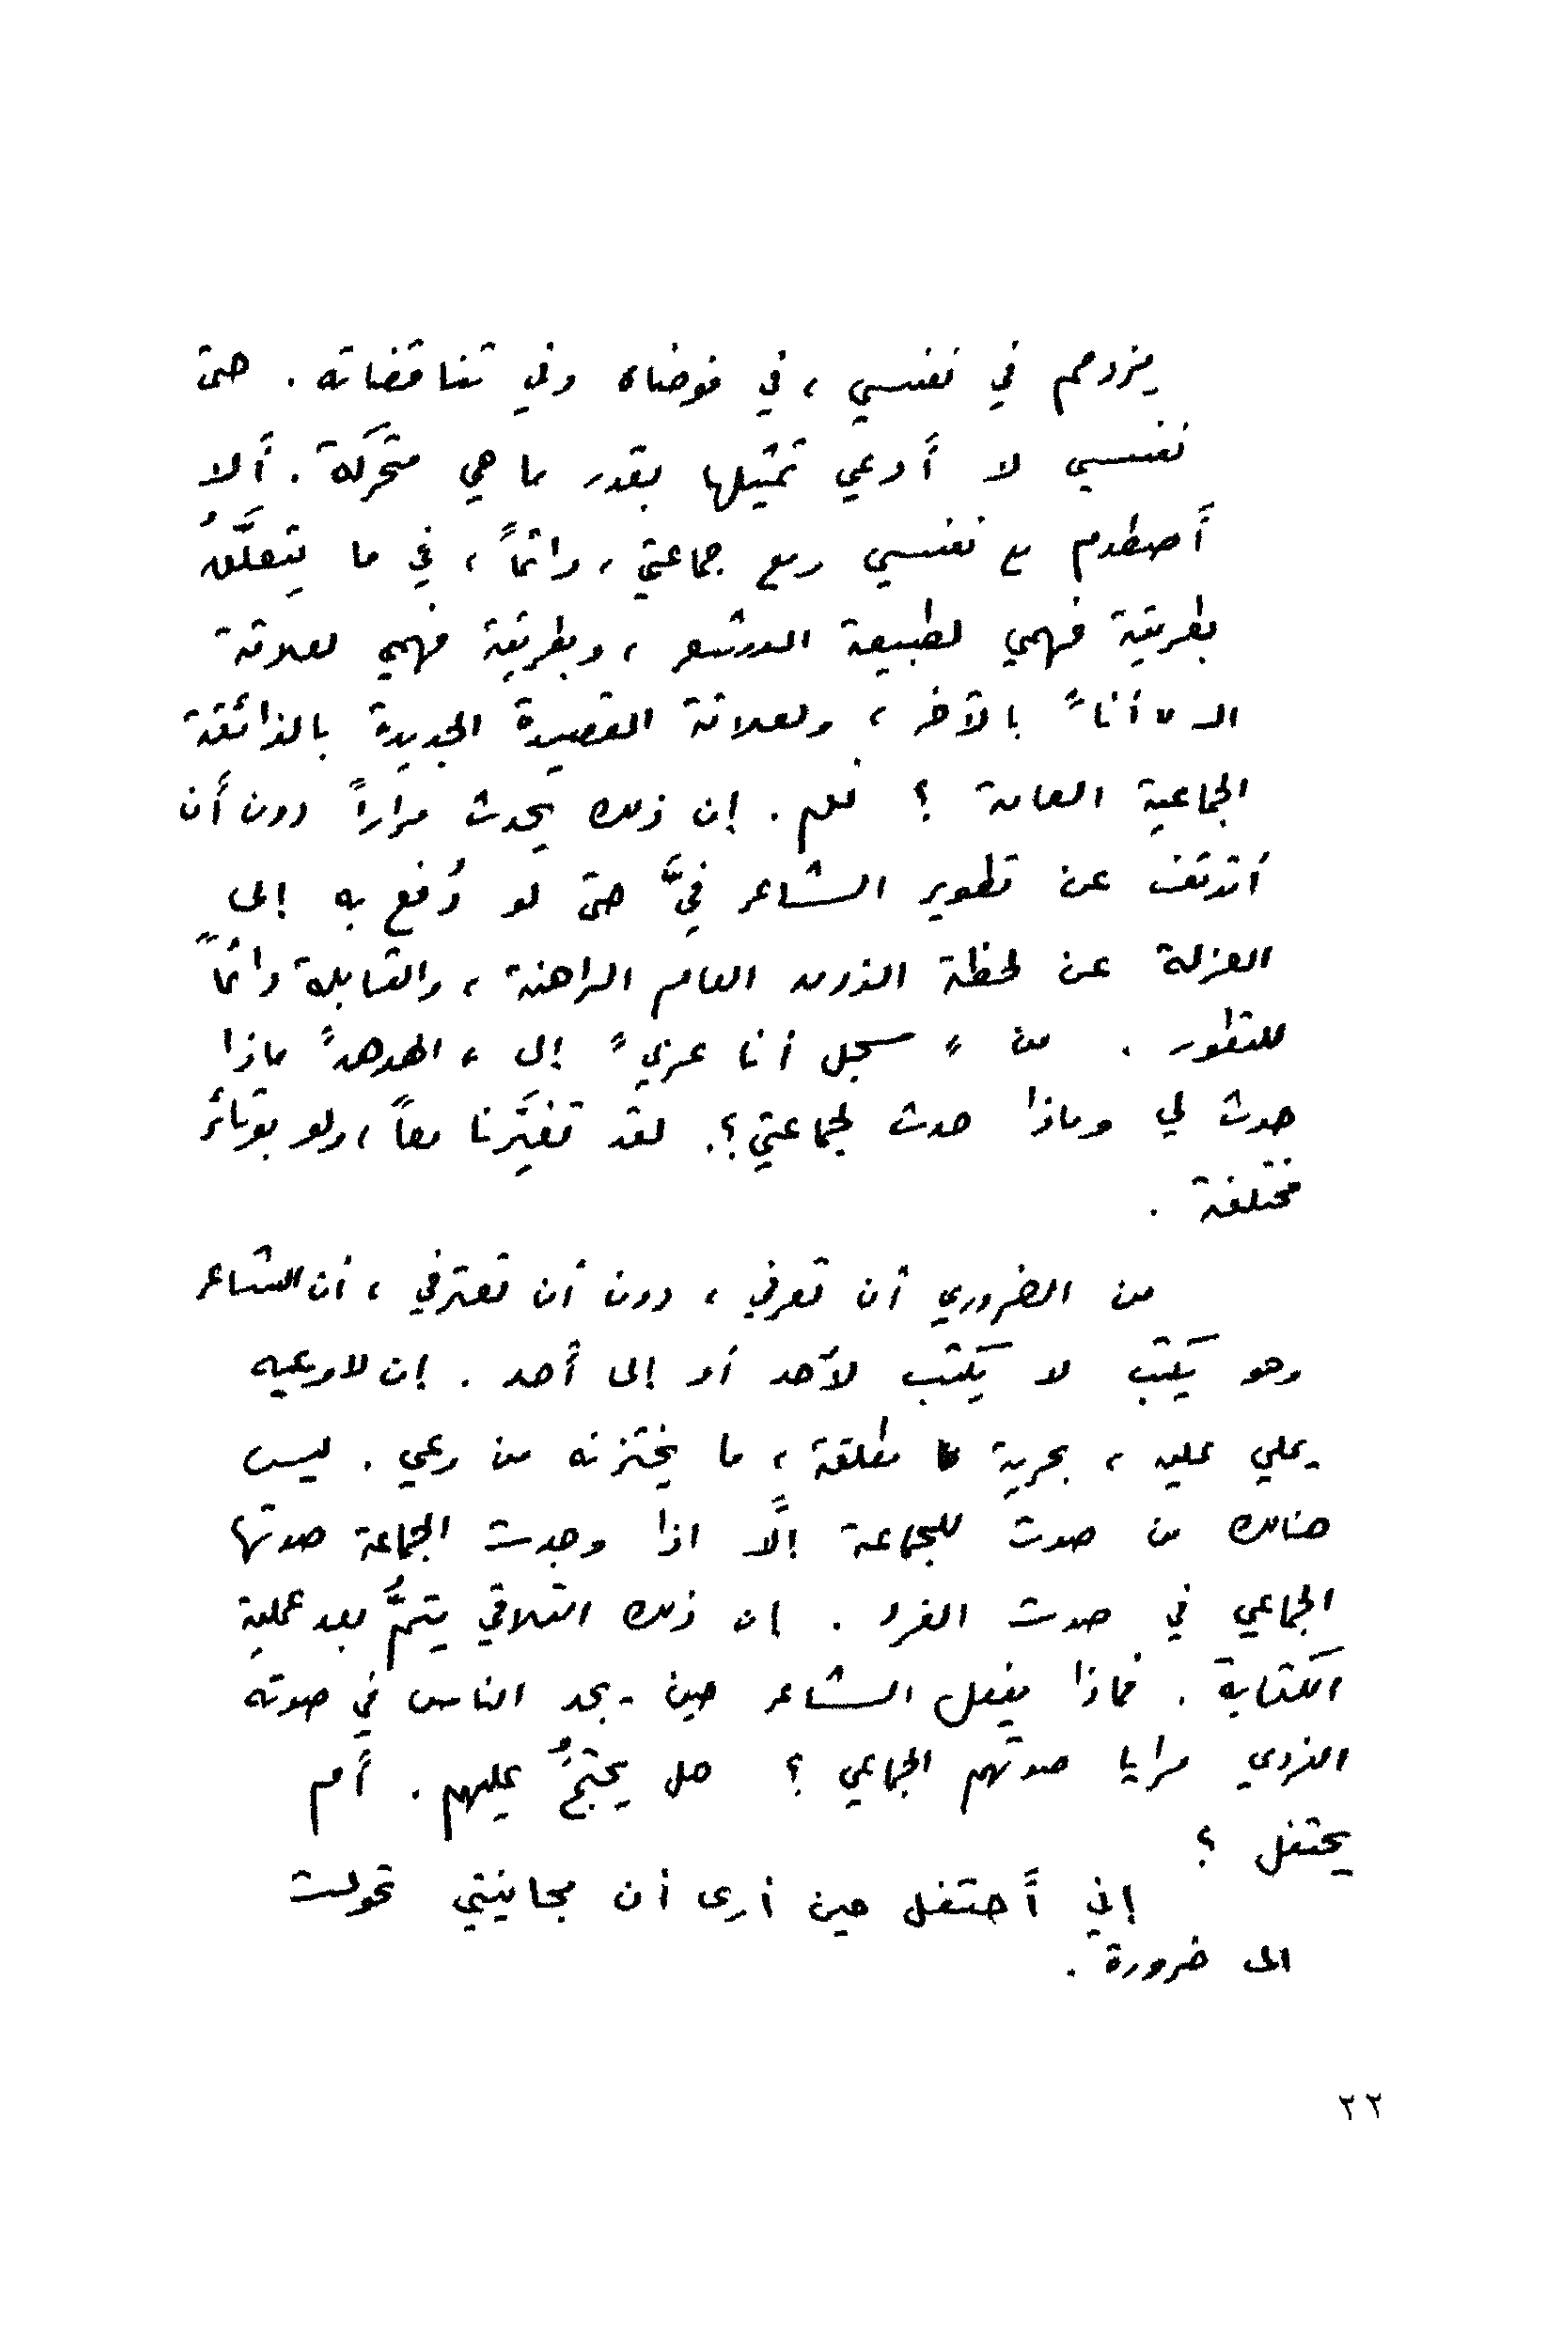 يزدحم في نفسي ، في فوضاه وفي تناقضاته . حتى
نفسي لا أدعي تمثيلها بقدر ما هي متحركة . ألا
أصطدم مع نفسي ومع جماعتي ، دائماً ، في ما يتعلَّقُ
بطريقة فهمي لطبيعة الشعر ، وبطريقة فهمي لعلاقة
الـ "أنا" بالآخر ، ولعلاقة القصيدة الجديدة بالذائقة
الجماعية العامة ؟ نعم . إن ذلك يحدث مراراً دون أن
أتوقف عن تطوير الشاعر فيَّ حتى لو دُفع به إلى
العزلة عن لحظة الذوق العام الراهنة ، والقابلة دائماً
للتطور . من " سجل أنا عربي " إلى " الهدهد " ماذا
حدث لي وماذا حدث لجماعتي ؟ . لقد تغيَّرنا معاً ، ولو بوتائر
مختلفة .
من الضروري أن تعرفي ، دون أن تعترفي ، أن الشاعر
وهو يكتب لا يكتب لأحد أو إلى أحد . إن لاوعيه
يملي عليه ، بحرية مطلقة ، ما يختزنه من وعي . ليس
هنالك من صوت للجماعة إلَّا اذا وجدت الجماعة صوتها
الجماعي في صوت الفرد . إن ذلك التلاقي يتمُّ بعد عملية
الكتابة . فماذا يفعل الشاعر حين يجد الناس في صوته
الفردي مرايا صوتهم الجماعي ؟ هل يحتجُّ عليهم . أم
يحتفل ؟
إني أحتفل حين أرى أن مجانيتي تحولت
الى ضرورة .
٢٢